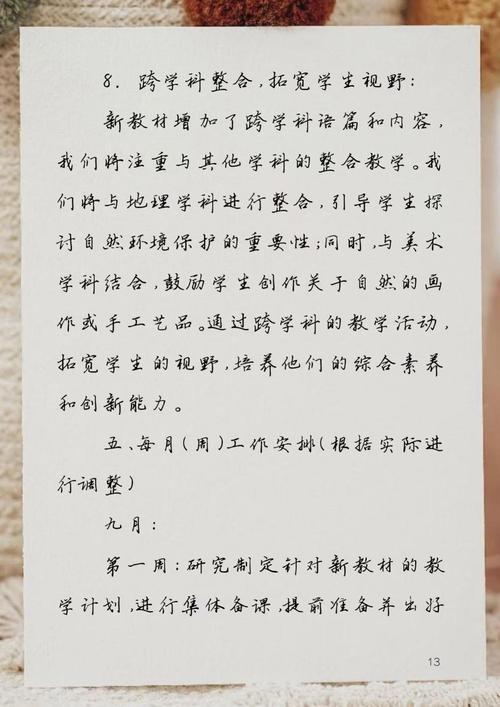 8. 跨学科整合,拓宽学生视野:
新教材增加了跨学科语篇和内容,
我们将注重与其他学科的整合教学。我
们将与地理学科进行整合,引导学生探
讨自然环境保护的重要性;同时,与美术
学科结合,鼓励学生创作关于自然的画
作或手工艺品。通过跨学科的教学活动,
拓宽学生的视野,培养他们的综合素养
和创新能力。
五、每月(周)工作安排(根据实际进
行调整)
九月:
第一周:研究制定针对新教材的教
学计划,进行集体备课,提前准备并出好
13